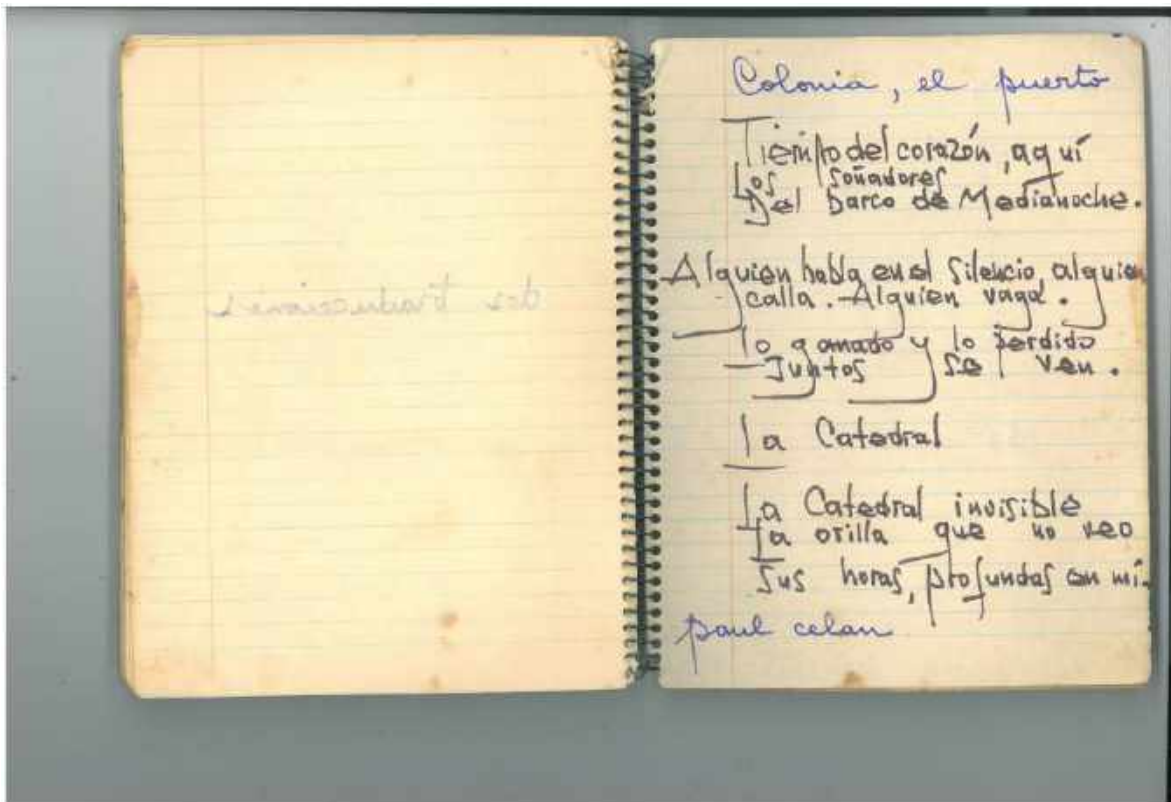 dos traducciones
Colonia, el puerto
Tiempo del corazón, aquí
Los soñadores
Del barco de Medianoche.
Alguien habla en el Silencio, alguien
calla. Alguien vaga.
Lo ganado y lo perdido
Juntos se ven.
La Catedral
La Catedral invisible
La orilla que no veo
Sus horas, profundas en mí.
paul celan